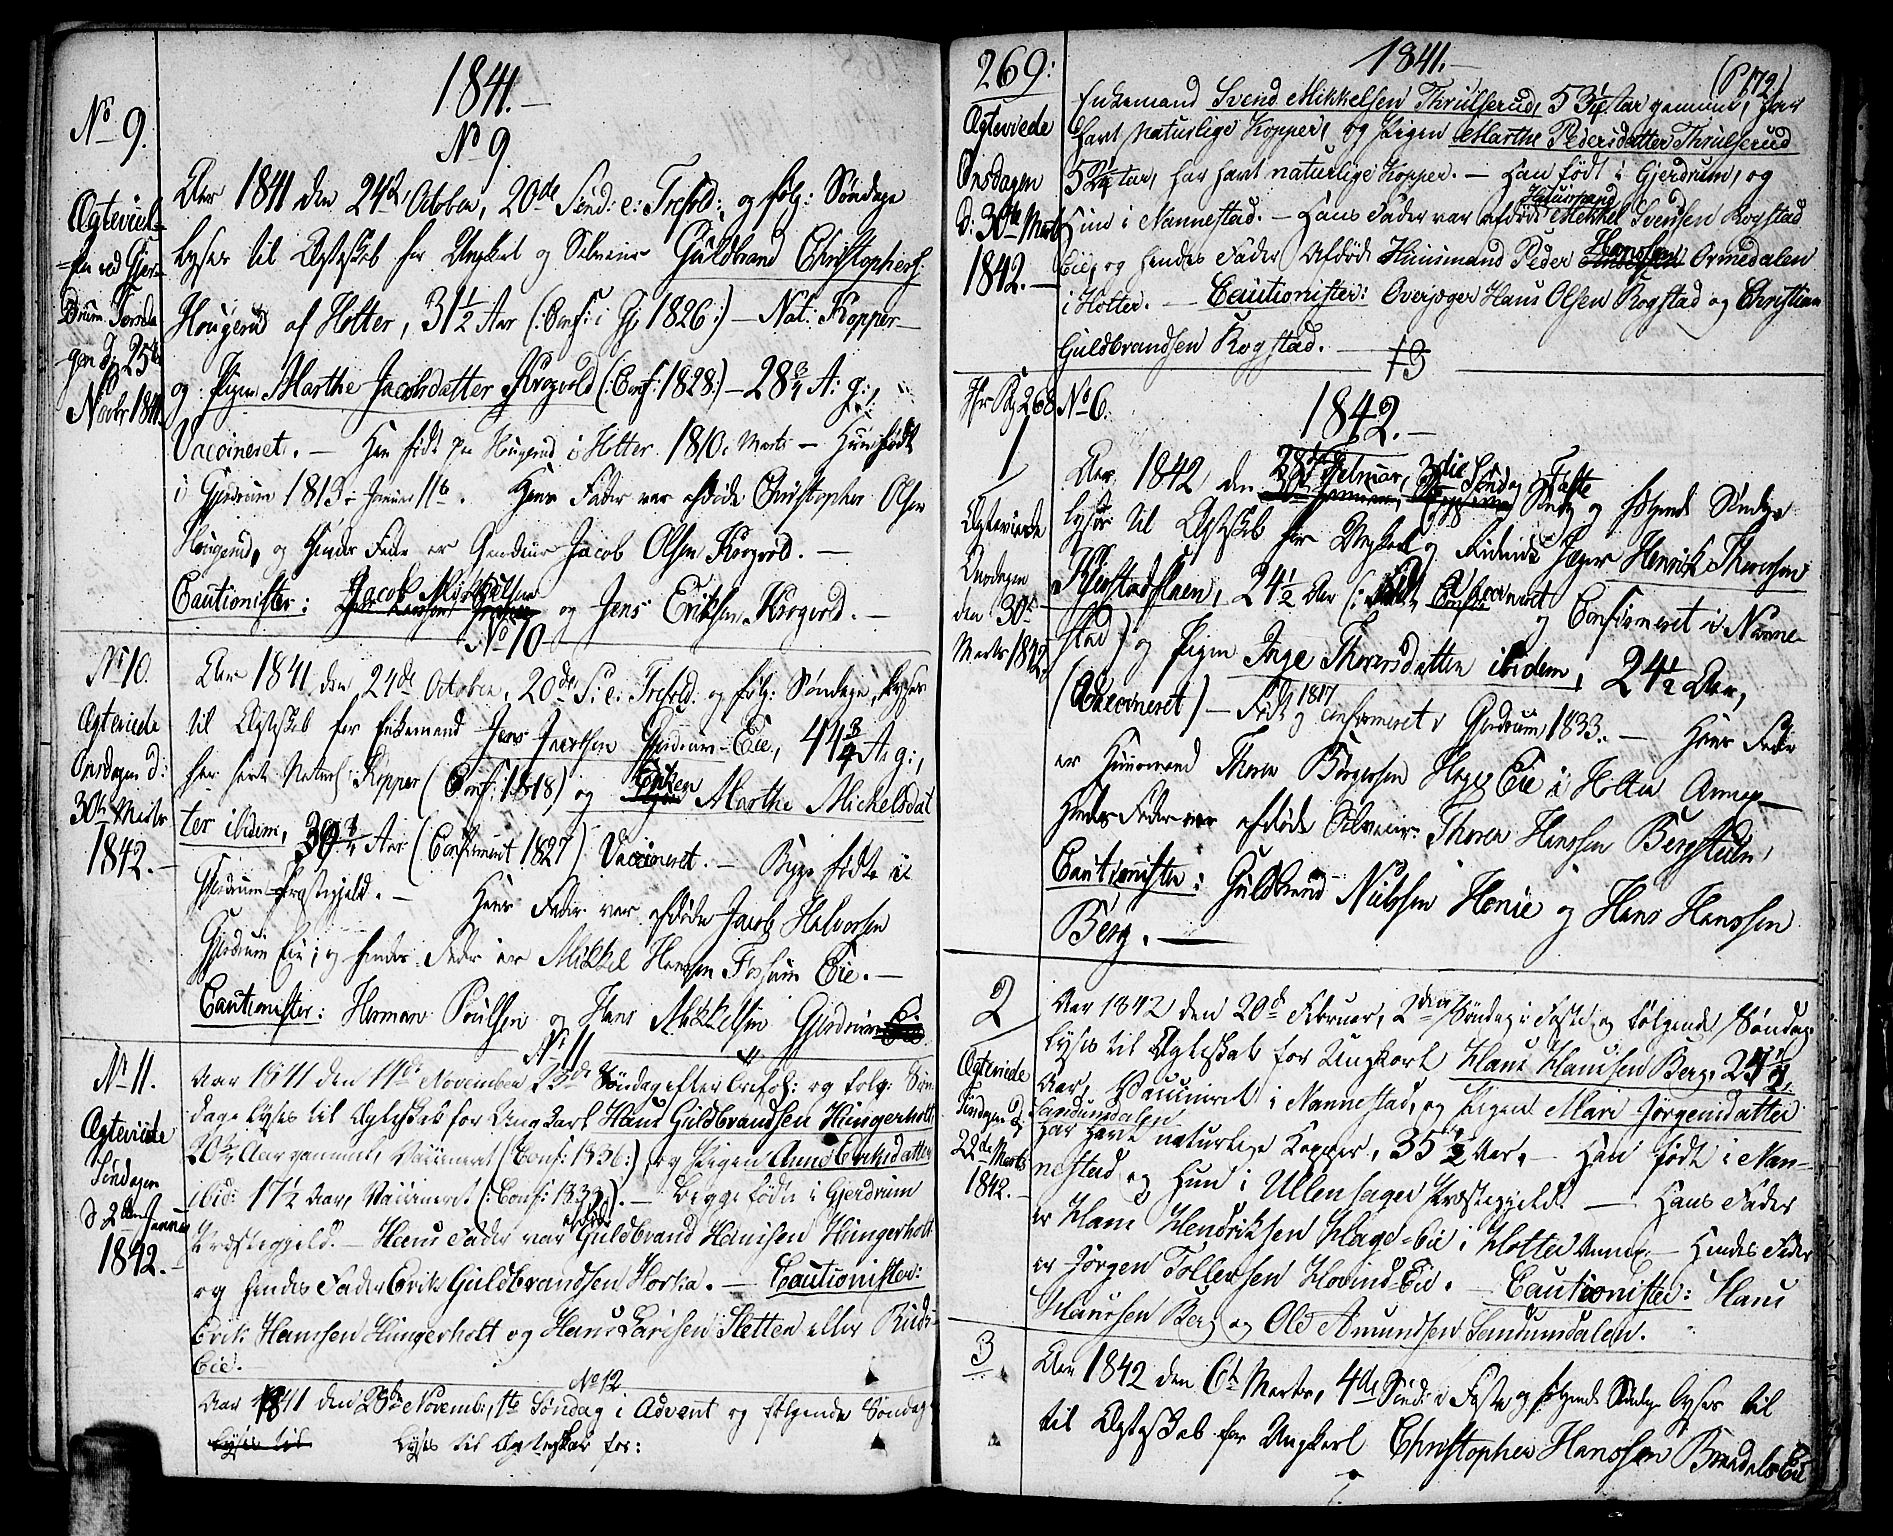 1841.
No 9.
No 9.
Ægteviel-
-se ved Gjer-
drum Torsda
gen d. 25de
Novbr 1841.
Aar 1841 den 24de October, 20de Sønd: e: Trefold: og følg: Søndage
lyses til Ægteskab for Ungkarl og Selveier Guldbrand Christophers:
Hougerud af Holter, 31½ Aar (: Conf: i Gj. 1826 :) – Nat: Kopper –
og Pigen Marthe Jacobsdatter Krogvold (: Conf: 1828 :) – 28¾ A: g:,
Vaccineret. – Han født paa Hougerud i Holter 1810, Marts – Hun født
i Gjerdrum 1813. Januar 11te. Hans Fader var afdøde Christopher Olsen
Hougerud, og Hendes Fader er Gaardmr Jacob Olsen Krogvold. –
Cautionister: Jacob Mikkelsen og Jens Eriksen Krogvold. –
No 10
No 10.
Ægteviede
Onsdagen d:
30te Marts
1842. –
Aar 1841 den 24de October, 20de S: e: Trefold: og følg: Søndage, lyses
til Ægteskab for Enkemand Jens Jacobsen Gjerdrum-Eie, 44¾ A: g:,
har havt Naturl: Kopper (Conf: 1818) og Enken Marthe Michelsdat
ter ibidem, 30¾ Aar (Confirmeret 1827) Vaccineret. – Begge fødte i
Gjerdrum Præstegjeld. – Hans Fader var afdøde Jacob Halvorsen
Gjerdrum Eie; og hendes Fader er Mikkel Hansen Fossum Eie. –
Cautionister: Herman Poulsen og Hans Mikkelsen Gjerdrum Eie
No 11
No 11.
Ægteviede
Søndagen
d 2den Januar
1842. –
Aar 1841 den 14de November 23de Søndag efter Trefold: og følg: Søn
dage lyses til Ægteskab for Ungkarl Hans Guldbrandsen Hungerholt
20½ Aar gammel, Vaccineret (Conf: 1836 :), og Pigen Anne Eriksdatter
ibid: 17½ Aar, Vaccineret (: Conf: 183 ). – Begge fødte i Gjerdrum
Præstegjeld. – Hans Fader var afdøde Guldbrand Hansen Hungerholt
og hendes Fader Erik Guldbrandsen Horka. – Cautionister:
Erik Hansen Hungerholt og Hans Larsen Sletten eller Ruds
Eie. –
No 12
Aar 1841 den 28de Novemb:, 1te Søndag i Advent og følgende Søndag
lyses til lyses til Ægteskab for:
269:
1841. –
(P. 172)
Ægteviede
Onsdagen
d: 30te Marts
1842. –
Enkemand Svend Mikkelsen Thrulserud, 53¼ Aar gammel, har
havt naturlige Kopper, og Pigen Marthe Pedersdatter Thrulserud
53¼ Aar, har havt naturlige Kopper. – Han født i Gjerdrum, og
Hun i Nannestad. – Hans Fader var afdøde Huusmand Mikkel Svendsen Rogstad
Eie, og hendes Fader Afdøde Huusmand Peder Hansen Ormedalen
i Holter. – Cautionister: Overjæger Hans Olsen Rogstad og Christian
Guldbrandsen Rogstad. –
13
Hr Pag 268 No 6.
1842. –
1
Ægteviede
Onsdagen
den 30te
Marts 1842
Aar 1842 den 28de Februar, 3die Søndag i Faste og følgende Søndage
lyses til Ægteskab for Ungkarl og Ridende Jæger Henrik Thoresen
Kjerstadslaen, 24½ Aar (: Vaccineret og Confirmeret i Nanne-
stad) og Pigen Inge Thoresdatter ibidem, 24½ Aar,
(Vaccineret) – Født 1817 og confirmeret i Gjerdrum 1833. – Hans Fader
er Huusmand Thore Børgersen Hage Eie i Holter Annex –
Hendes Fader var afdøde Selveier Thore Hanssen Bergstedn,
Cautionister: Guldbrand Nielssen Hønie og Hans Hanssen
Berg. –
2
Ægteviede
Søndagen d:
22de Marts
1842. –
Aar 1842 den 20de Februar, 2den Søndag i Faste, og følgende Søndag
lyses til Ægteskab for Ungkarl Hans Hansen Berg, 23½
Aar, Vaccineret i Nannestad, og Pigen Mari Jørgensdatter
Sandumdalen
har havt naturlige Kopper, 35½ Aar. – Han født i Nan-
nestad og Hun i Ullensager Præstegjeld. – Hans Fader
er Hans Hendriksen Hage-Eie i Holter Annex – Hendes Fader
er Jørgen Tollersen Hovind-Eie. – Cautionister: Hans
Hansen Berg og Ole Amundsen Sandumdalen.
3
Aar 1842 den 6te Marts, 4de Sønd: i Faste og følgende Søndage lyses til
til Ægteskab for Ungkarl Christopher Hanssen Brædals Eie